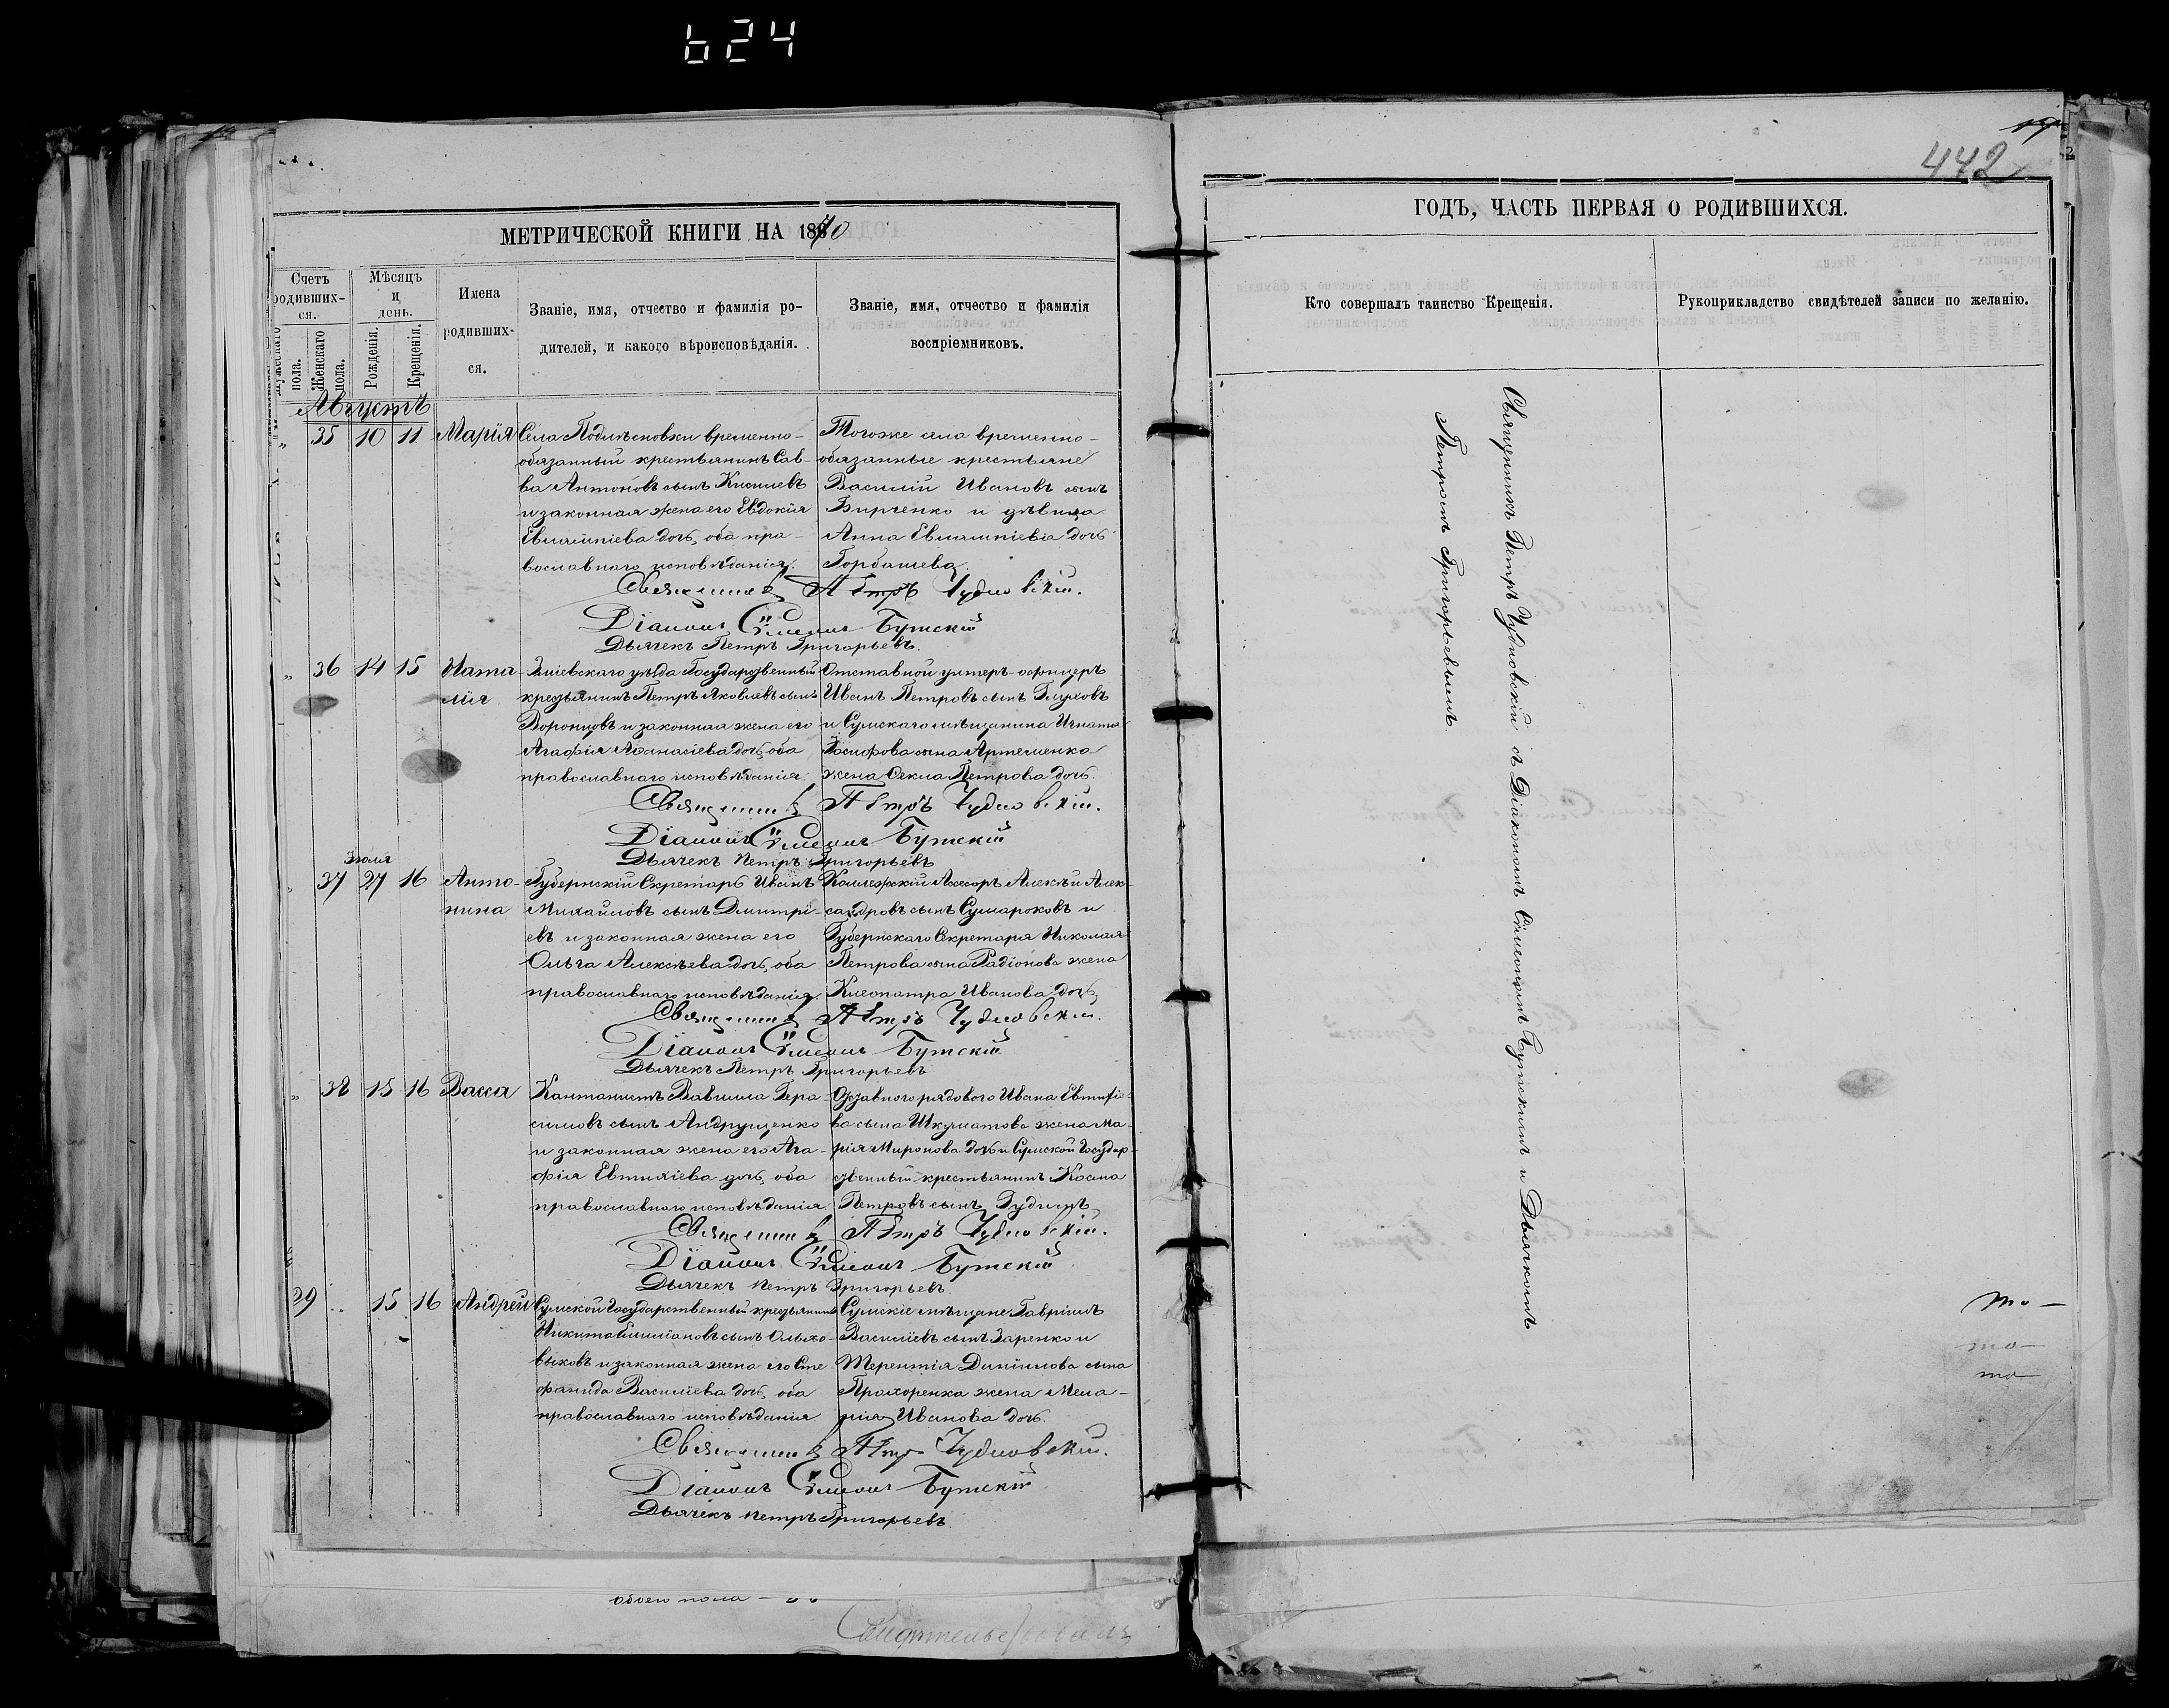 624
442
МЕТРИЧЕСКОЙ КНИГИ НА 1870
Счетъ родивших-ся.
Мѣсяцъ и день.
Имена родивших-ся.
Званіе, имя, отчество и фамилія ро-
дителей, и какого вѣроисповѣданія.
Званіе, имя, отчество и фамилія
воспріемниковъ.
пола.
Женскаго пола.
Рожденія.
Крещенія.
Августъ
„ 35 10 11 Марія
Села временно-
обязанный крестьянинъ Сав-
ва Антоновъ сынъ Киселевъ
и законная жена его Евдокія
Евлампіева дочь, оба пра-
вославнаго исповѣданія.
Тогоже села временно-
обязанные крестьяне
Василій Ивановъ сынъ
Бирченко и дѣвица
Анна Евлампіева дочь
Горбашева.
Священникъ Петръ Чудновскій.
Діаконъ Сѵмеонъ Бутскій
Дьячекъ Петръ Григорьевъ.
„ 36 14 15 Ната-
лія
Зміевскаго уѣзда Государственный
крестьянинъ Петръ Яковлевъ сынъ
Воронцовъ и законная жена его
Агафія Аѳанасіева дочь, оба
православнаго исповѣданія.
Отставной унтеръ-офицеръ
Иванъ Петровъ сынъ Глуховъ
и Сумскаго мѣщанина Игната
Іосифова сына Артеменка
жена Ѳекла Петрова дочь.
Священникъ Петръ Чудновскій.
Діаконъ Сѵмеонъ Бутскій
Дьячекъ Петръ Григорьевъ
Іюля
„ 37 27 16 Анто-
нина
Губернскій Секретарь Иванъ
Михайловъ сынъ Дмитрі-
евъ и законная жена его
Ольга Алексѣева дочь, оба
православнаго исповѣданія.
Коллежскій Асесоръ Алексѣй Алек-
сандровъ сынъ Сумароковъ и
Губернскаго Секретаря Николая
Петрова сына Радіонова жена
Клеопатра Иванова дочь
Священникъ Петръ Чудновскій.
Діаконъ Сѵмеонъ Бутскій
Дьячекъ Петръ Григорьевъ
„ 38 15 16 Васса
Кантонистъ Вавила Гера-
симовъ сынъ Андрущенко
и законная жена его Ага-
фія Евтихіева дочь, оба
православнаго исповѣданія
рядового Ивана
ва сына Шкуматова жена Ма-
рія Миронова дочь и Сумской Государ-
ственный крестьянинъ Косма
Петровъ сынъ
Священникъ Петръ Чудновскій.
Діаконъ Сѵмеонъ Бутскій
Дьячекъ Петръ Григорьевъ
29 „ 15 16 Андрей
Сумской Государственный крестьянинъ
Никита сынъ Ольхо-
виковъ и законная жена его Сте-
фанида Василіева дочь, оба
православнаго исповѣданія
Сумскіе мѣщане Гавріилъ
Василіевъ сынъ Заренко и
Терентія Даніилова сына
Прохоренка жена Мела-
нія Иванова дочь.
Священникъ Петръ Чудновскій.
Діаконъ Сѵмеонъ Бутскій
Дьячекъ Петръ Григорьевъ.
обоего пола —
ГОДЪ, ЧАСТЬ ПЕРВАЯ О РОДИВШИХСЯ.
Кто совершалъ таинство Крещенія.
Рукоприкладство свидѣтелей записи по желанію.
Священникъ Петръ Чудновскій съ Діакономъ Сѵмеономъ Бутскимъ и Дьячкомъ
Петромъ Григорьевымъ.
то —
то —
то